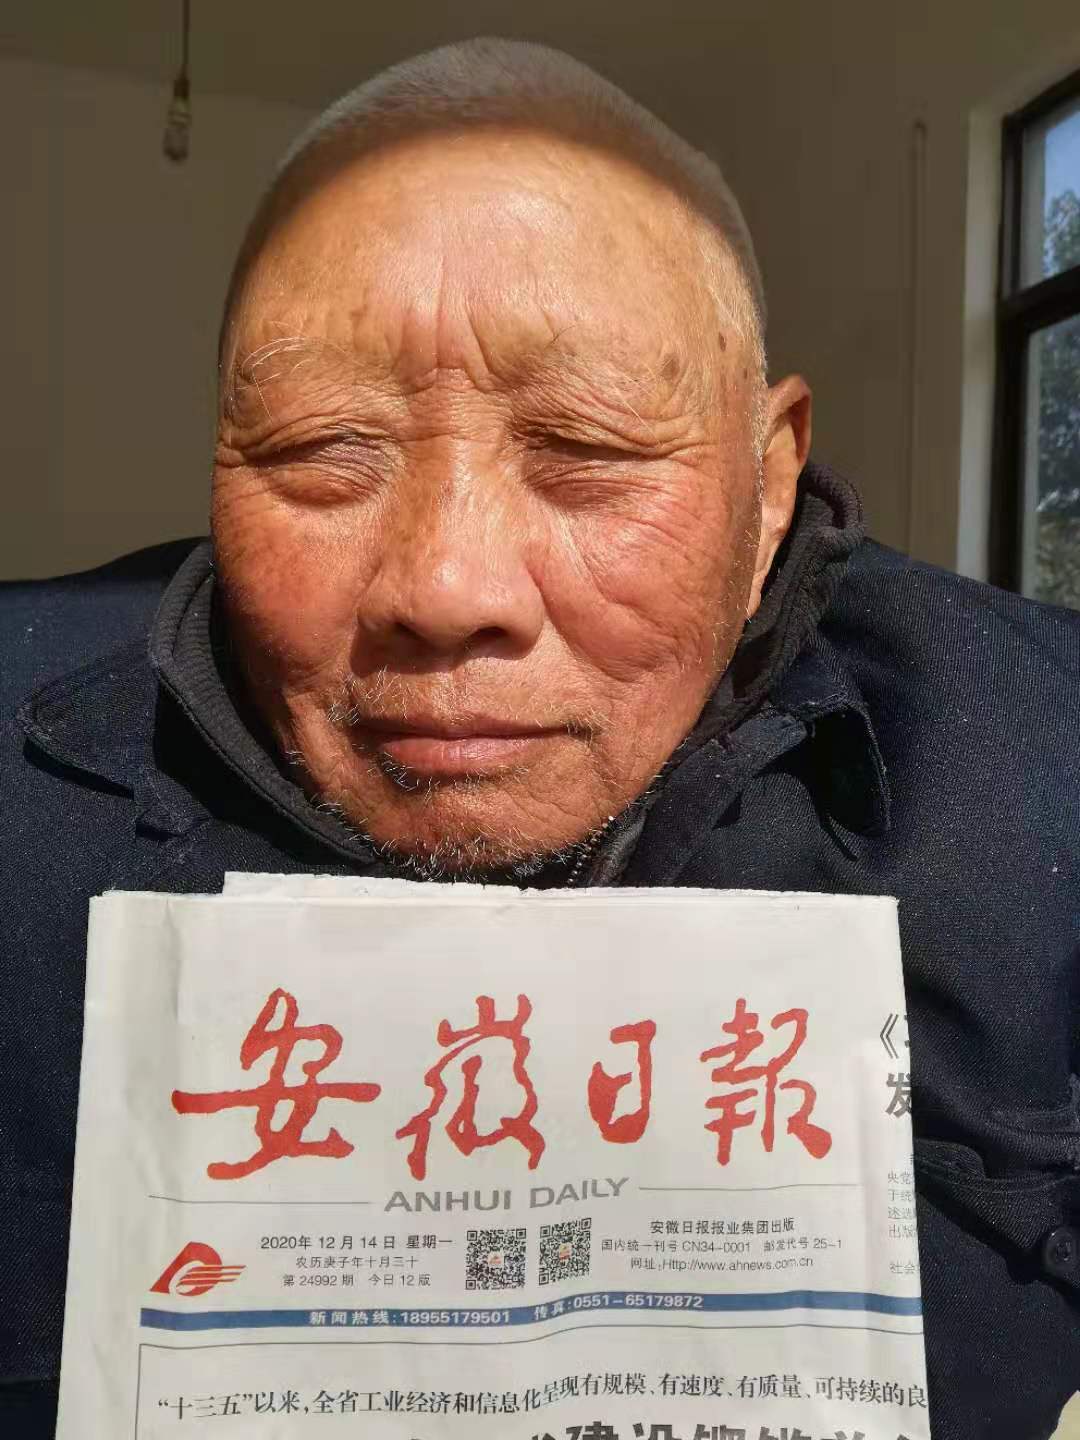 安徽日報
ANHUI DAILY
2020年12月14日 星期一
农历庚子年十月三十
第24992期 今日12版
安徽日报报业集团出版
国内统一刊号CN34-0001 邮发代号25-1
网址:Http://www.ahnews.com.cn
新闻热线:18955179501 传真:0551-65179872
“十三五”以来,全省工业经济和信息化呈现有规模、有速度、有质量、可持续的良
发
央党
述选
出版
社会